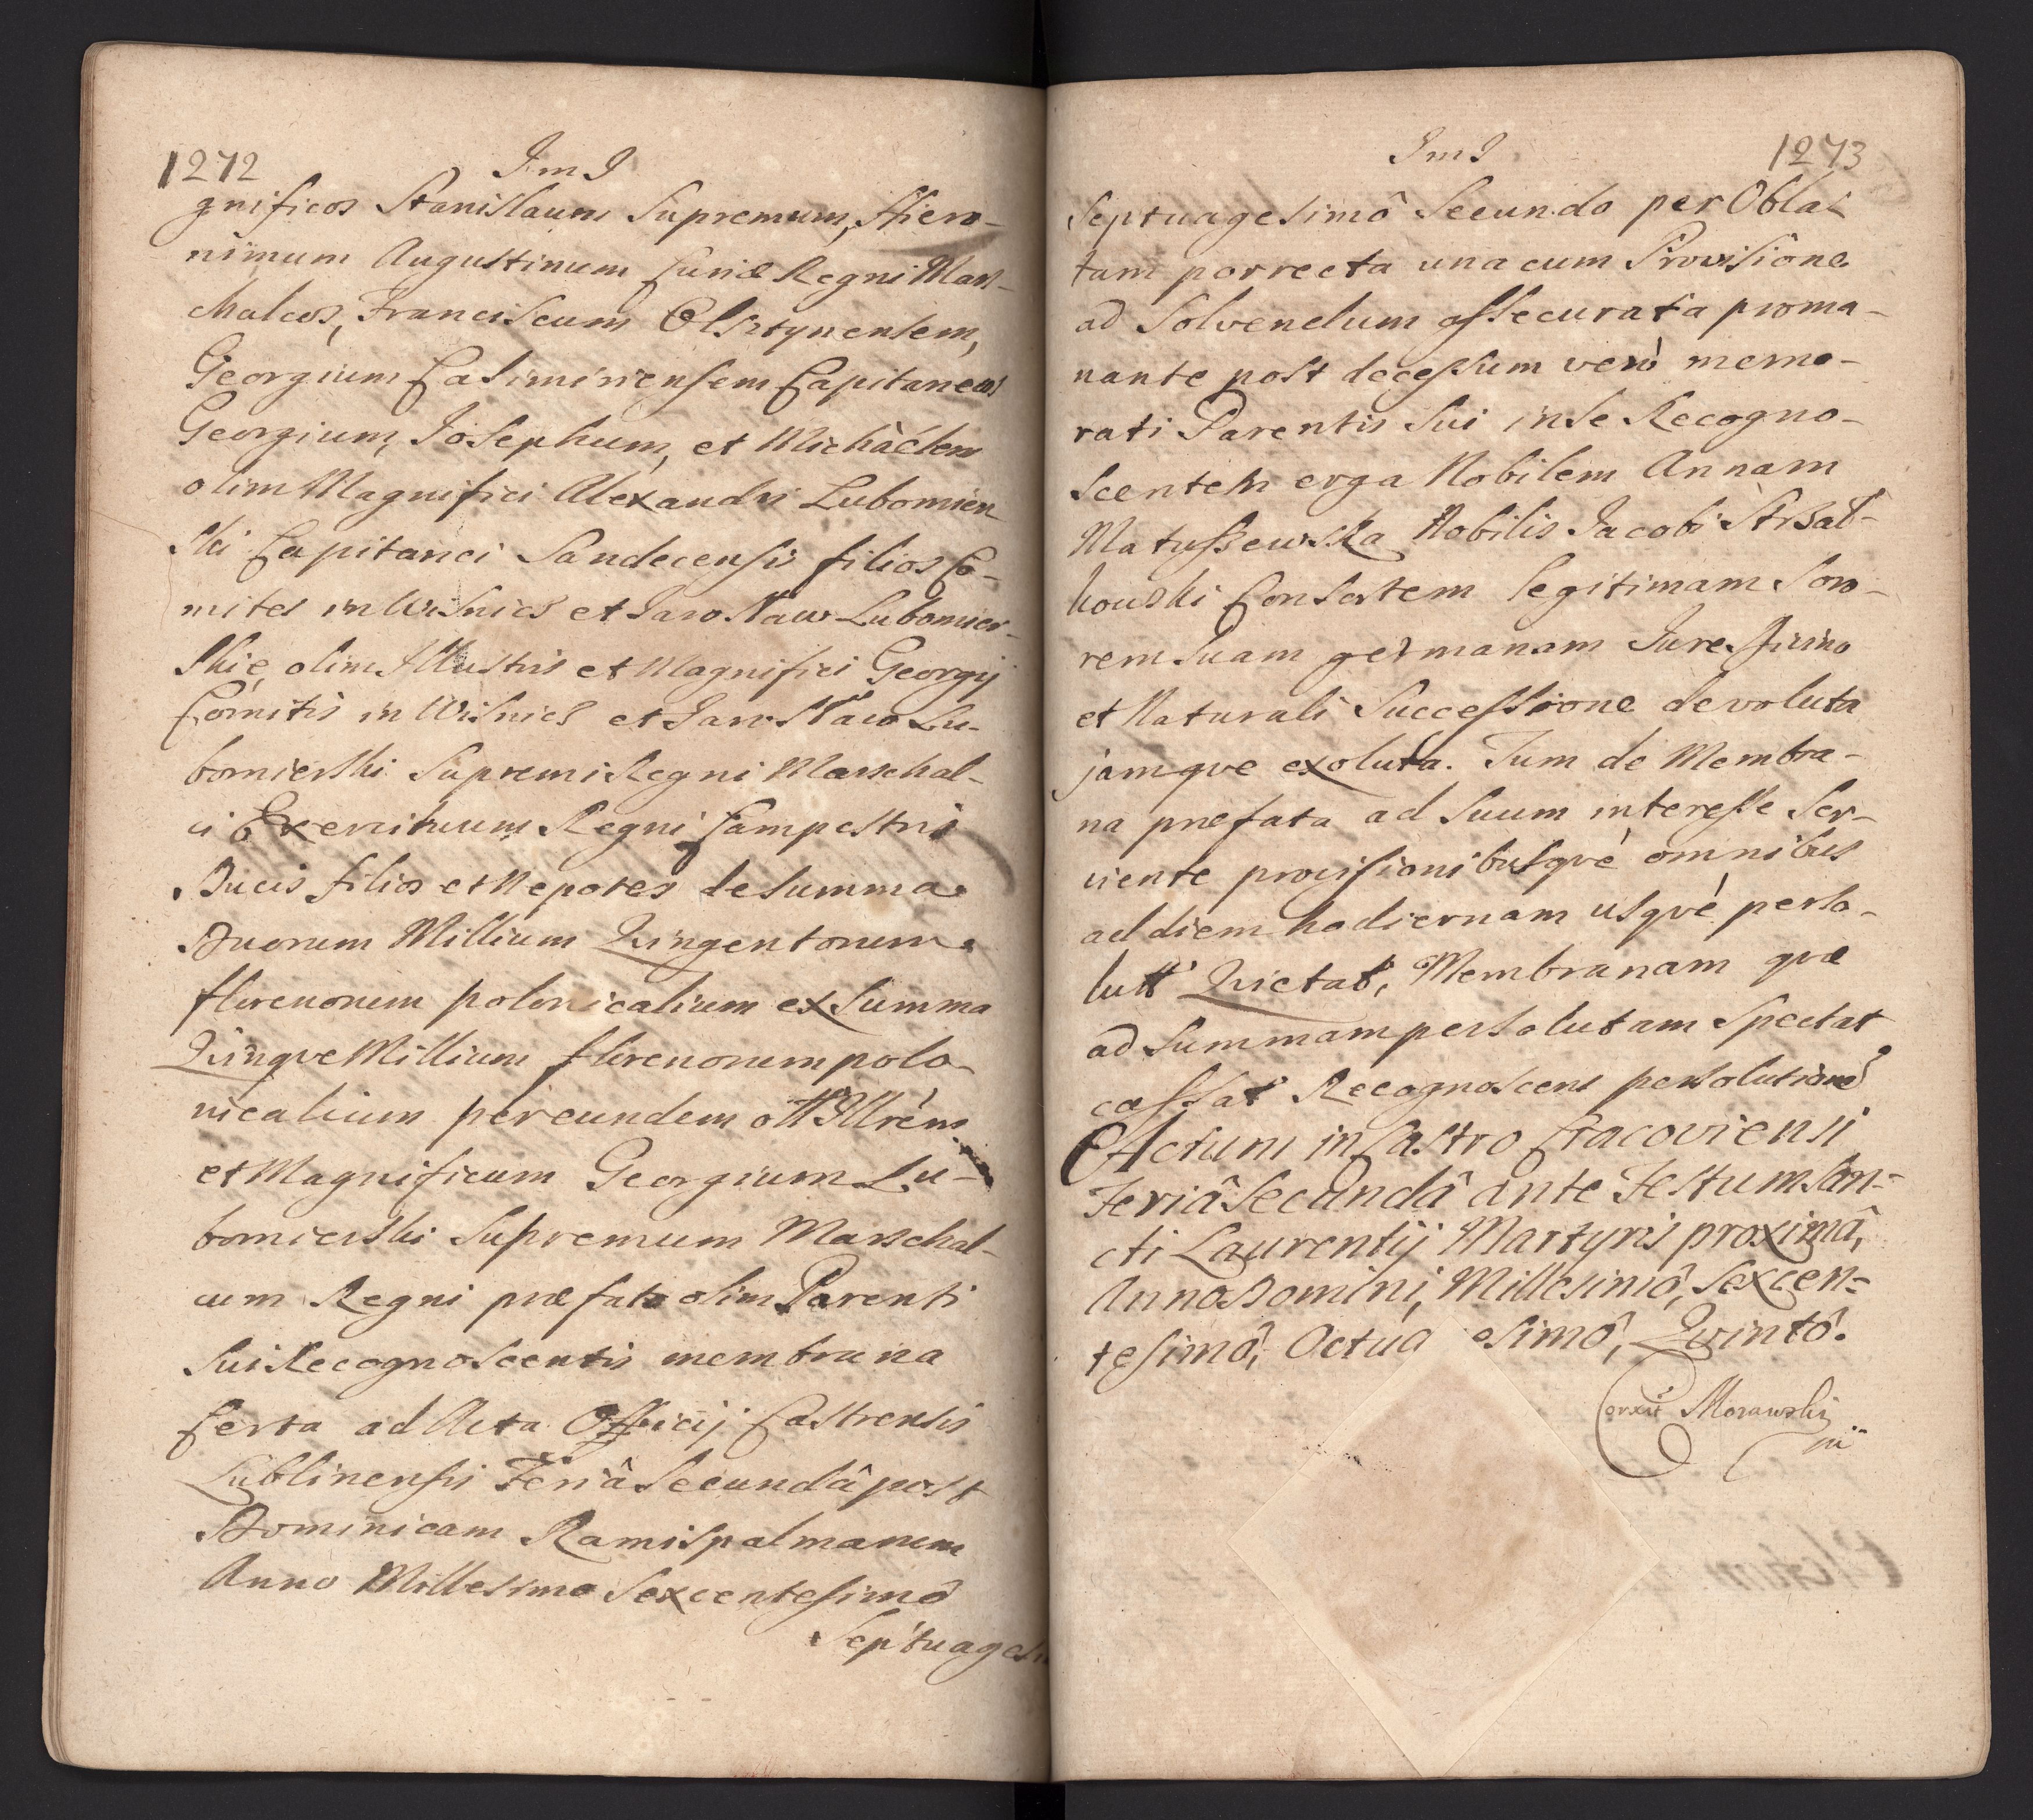 1272
I m I
gnificos Stanislaum Supremum, Hiero-
nimum Augustinum Curiæ Regni Mars-
chalcos, Franciscum Olsztynensem,
Georgium Casimiriensem Capitaneos
Georgium, Josephum, et Michaèlem
olim Magnifici Alexandri Lubomier
ski Capitanei Sandecensis filios Co-
mites in Wisnicz et Jaroslaw Lubomier-
skie, olim Illustris et Magnifici Georgij
Comitis in Wisnicz et Jaroslaw Lu-
bomierski Supremi Regni Marschal-
ci Exercituum Regni Campestris
Ducis filios et Nepotes de summa
Duorum Millium Qvingentorum
florenorum polonicalium ex Summa
Qvinqve Millium florenorum polo-
nicalium per eundem ott Illrem
et Magnificum Georgium Lu-
bomierski Supremum Marschal-
cum Regni præfato olim Parenti
Sui Recognoscentis membrana
certa ad Acta Officij Castrensis
Lublinensis Feriâ Secundâ post
Dominicam Ramispalmarum
Anno Millesimo Sexcentesimô
Septuagesi
I m I
1273
Septuagesimô Secundo per Obla-
tam porrecta una cum Provisione
ad Solvendum assecurata proma-
nante post decessum verò memo-
rati Parentis Sui in se Recogno-
scentem erga Nobilem Annam
Matuszewska Nobilis Jacobi Strzał-
kowski Consortem legitimam Soro-
rem Suam germanam Jure divino
et Naturali Successione devoluta
jamqve exoluta. Tum de Membra-
na præfata ad Suum interesse Ser-
viente provisionibusqvè omnibus
ad diem hodiernam usqvè perso-
lutt Qvietat, Membranam qvæ
ad Summam persolutam Spectat
cassat Recognoscens persolutionē
Actum in Castro Cracoviensi
Feriâ Secundâ ante Festum San-
cti Laurentij Martyris proximâ,
Anno Domini, Millesimô, Sexcen-
tesimô, Octua esimô, Qvintô.
Corxit Morawski